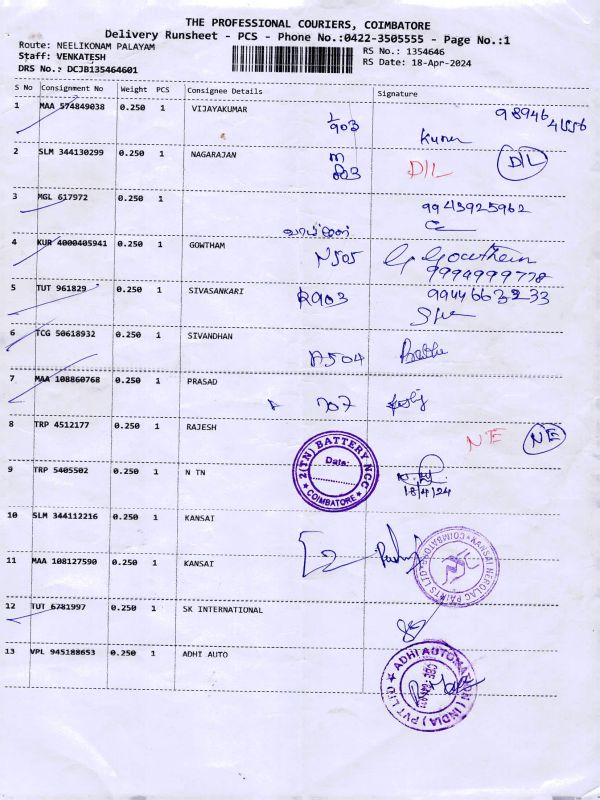 THE PROFESSIONAL COURIERS, COIMBATORE
Delivery Runsheet - PCS - Phone No.:0422-3505555 - Page No.:1
Route: NEELIKONAM PALAYAM
Staff: VENKATESH
DRS No.: DCJB135464601
RS No.: 1354646
RS Date: 18-Apr-2024
S No Consignment No Weight PCS Consignee Details Signature
1 MAA 574849038 0.250 1 VIJAYAKUMAR 903 98946
Kumar
2 SLM 344130299 0.250 1 NAGARAJAN M 803 D/L D/L
3 MGL 617972 0.250 1 9943925962
4 KUR 4000405941 0.250 1 GOWTHAM N505 G Gowtham
9994999778
5 TUT 961829 0.250 1 SIVASANKARI R903 9944663233
6 TCG 50618932 0.250 1 SIVANDHAN A504
7 MAA 108860768 0.250 1 PRASAD 707
8 TRP 4512177 0.250 1 RAJESH NE NE
9 TRP 5405502 0.250 1 N TN
2(TN) BATTERY NCC
Date:
COIMBATORE
18/4/24
10 SLM 344112216 0.250 1 KANSAI
11 MAA 108127590 0.250 1 KANSAI
KANSAI NEROLAC PAINTS LTD COIMBATORE
12 TUT 6781997 0.250 1 SK INTERNATIONAL
13 VPL 945188653 0.250 1 ADHI AUTO
ADHI AUTOMATION (INDIA) PVT LTD